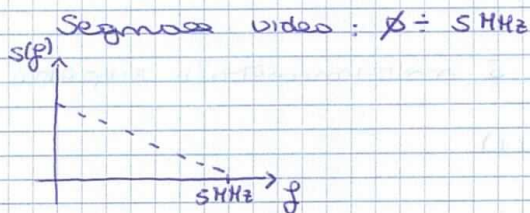 Segnale video : ∅ ÷ 5 MHz
S(f)
5 MHz
f